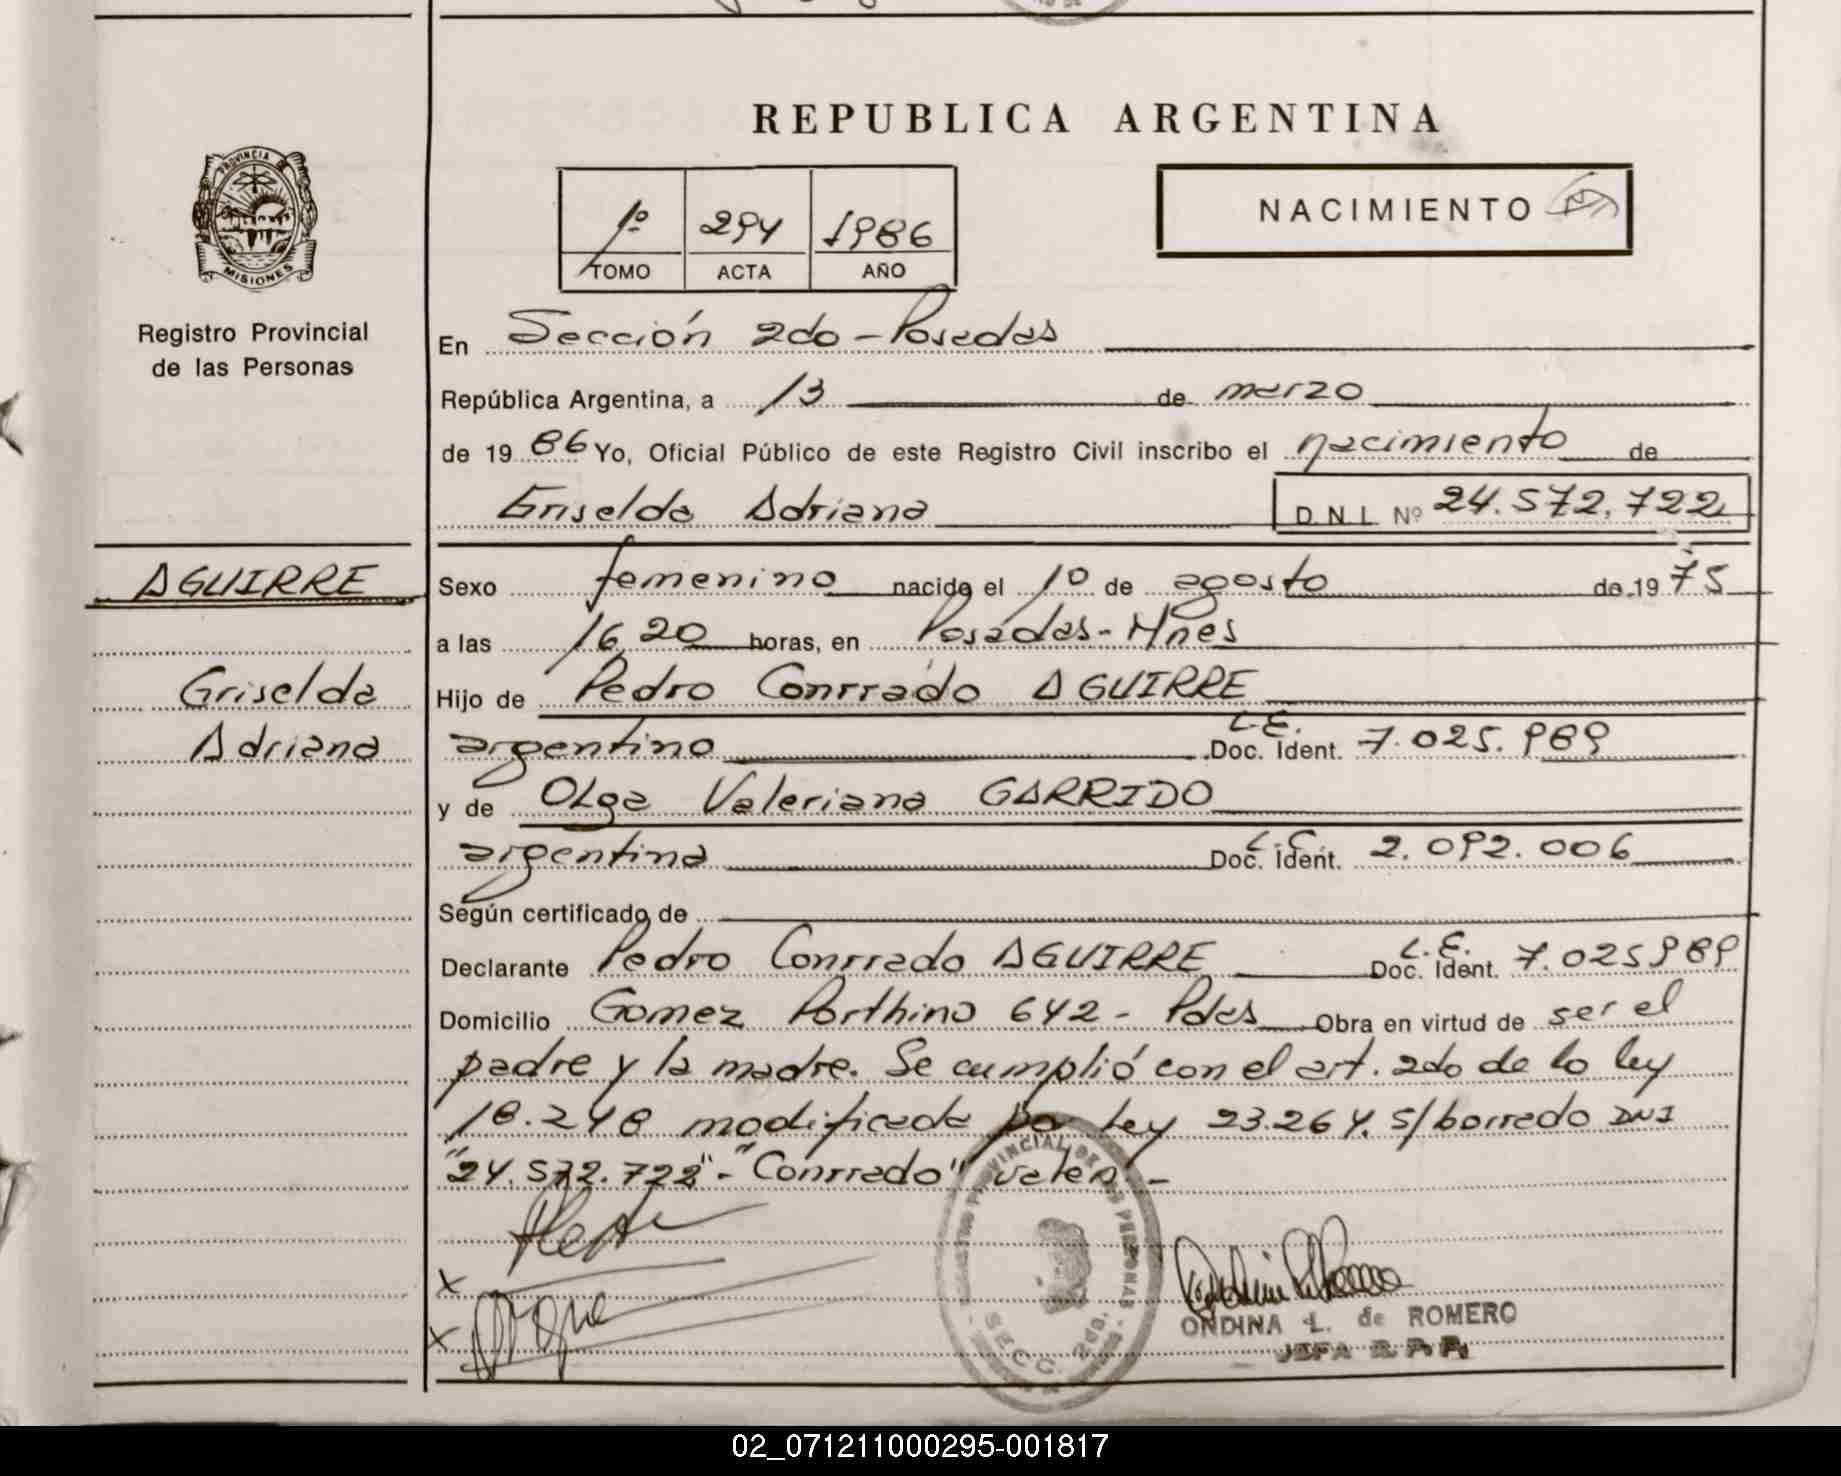 REPUBLICA ARGENTINA
PROVINCIA DE
MISIONES
Registro Provincial
de las Personas
1º 294 1986
TOMO ACTA AÑO
NACIMIENTO
En Sección 2do - Posadas
República Argentina, a 13 de marzo
de 1986 Yo, Oficial Público de este Registro Civil inscribo el nacimiento de
Griselda Adriana D.N.I. Nº 24.572.722
AGUIRRE
Griselda
Adriana
Sexo femenino nacido el 10 de agosto de 1975
a las 16,20 horas, en Posadas - Mnes
Hijo de Pedro Conrrado AGUIRRE
argentino L.E. Doc. Ident. 7.025.989
y de Olga Valeriana GARRIDO
argentina L.C. Doc. Ident. 2.092.006
Según certificado de
Declarante Pedro Conrrado AGUIRRE L.E. Doc. Ident. 7.025989
Domicilio Gomez Porthino 642 - Pdas Obra en virtud de ser el
padre y la madre. Se cumplió con el art. 2do de la ley
18.248 modificada por Ley 23.264. s/borrado DNI
"24.572.722" - "Conrrado" valen -
REGISTRO PROVINCIAL DE LAS PERSONAS
SECC. 2da.
ONDINA L. de ROMERO
JEFA R. P. P.
02_071211000295-001817